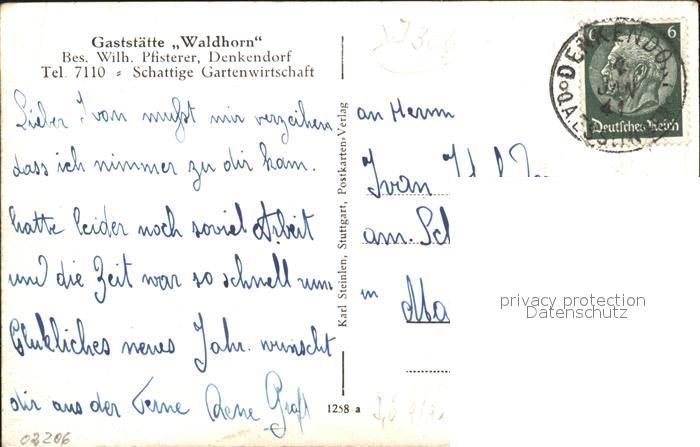 Gaststätte „Waldhorn"
Bes. Wilh. Pfisterer, Denkendorf
Tel. 7110 - Schattige Gartenwirtschaft
Lieber Ivan mußt mir verzeihen
dass ich nimmer zu dir kam.
hatte leider noch soviel Arbeit
und die Zeit war so schnell rum
Glükliches neues Jahr. wünscht
dir aus der Ferne
02206
Karl Steinlen, Stuttgart, Postkarten-Verlag
1258 a
an Herrn
Ivan
am. Sch
in
Ma
6
Deutsches Reich
DENKENDORF
JAN
41
privacy protection
Datenschutz